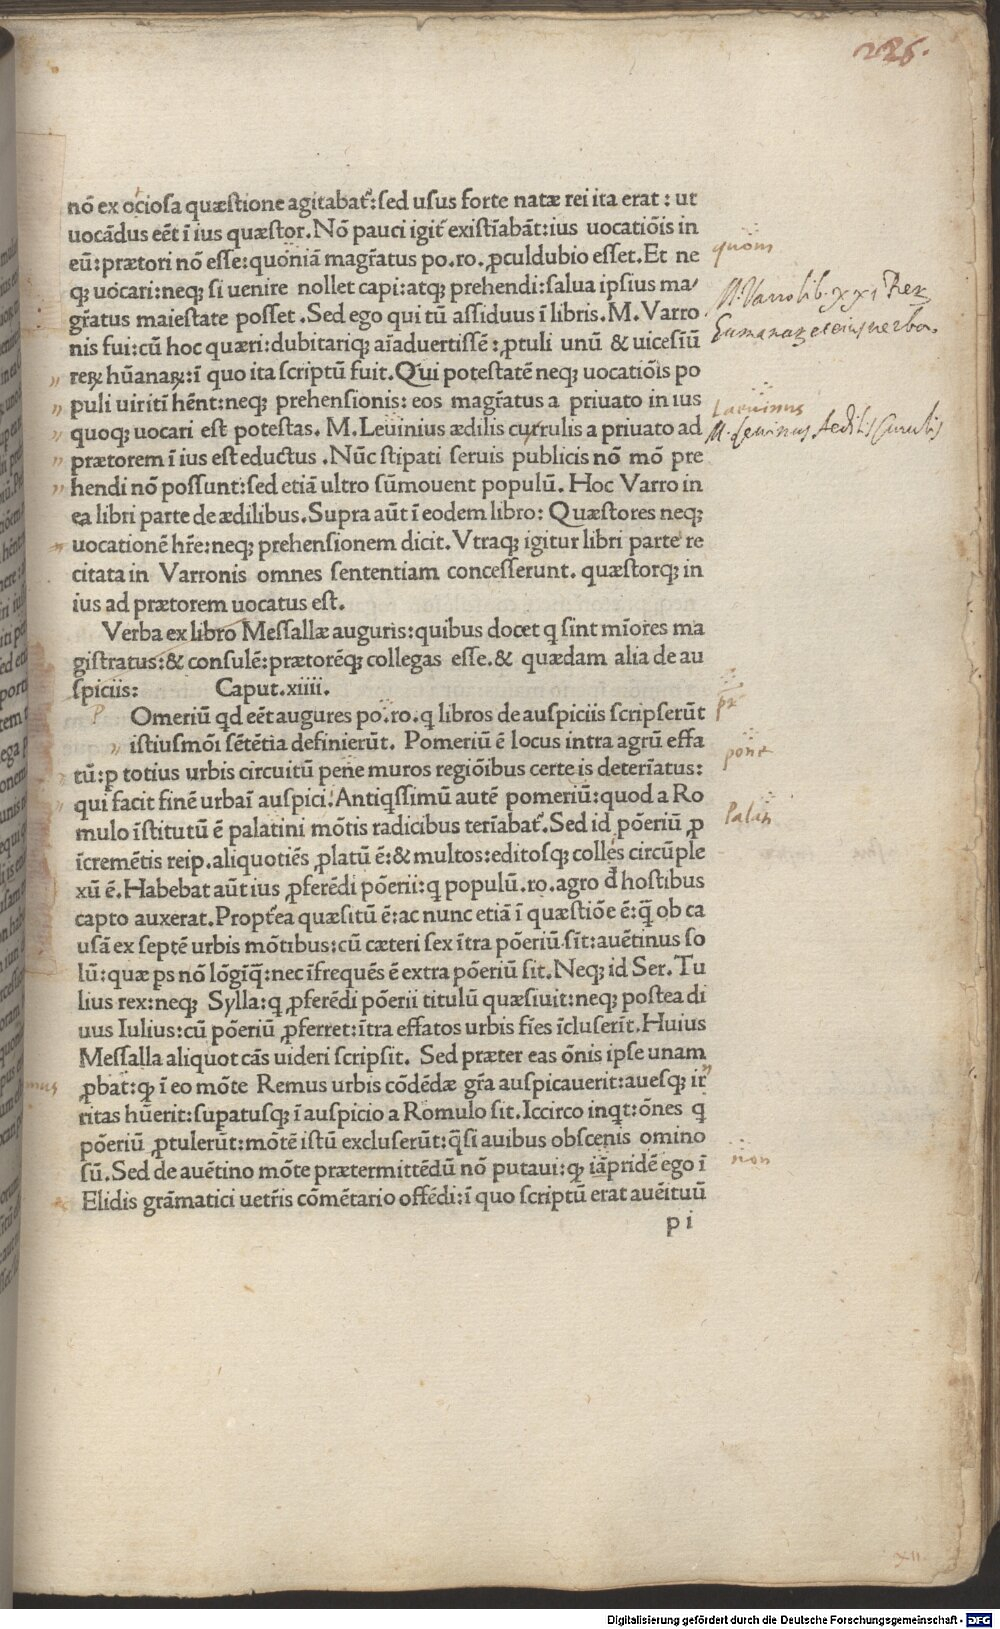 226.
nō ex ociosa quæstione agitabat᷑: sed usus forte natæ rei ita erat: ut
uocādus eēt ī ius quæstor. Nō pauci igit᷑ existīabāt: ius uocatiōis in
eū: prætori nō esse: quoniā magr̄atus po. ro. ꝓculdubio esset. Et ne
qꝫ uocari: neqꝫ si uenire nollet capi: atqꝫ prehendi: salua ipsius ma/
gr̄atus maiestate posset. Sed ego qui tū assiduus ī libris. M. Varro
nis fui: cū hoc quæri: dubitariqꝫ aīaduertissē: ꝓtuli unū & uicesīū
reꝝ hūanaꝝ: ī quo ita scriptū fuit. Qui potestatē neqꝫ uocatiōis po
puli uiritī hēnt: neqꝫ prehensionis: eos magr̄atus a priuato in ius
quoqꝫ uocari est potestas. M. Leuinius ædilis currulis a priuato ad
prætorem ī ius est eductus. Nūc stipati seruis publicis nō mō pre
hendi nō possunt: sed etiā ultro sūmouent populū. Hoc Varro in
ea libri parte de ædilibus. Supra aūt ī eodem libro: Quæstores neqꝫ
uocationē hr̄e: neqꝫ prehensionem dicit. Vtraqꝫ igitur libri parte re
citata in Varronis omnes sententiam concesserunt. quæstorqꝫ in
ius ad prætorem uocatus est.
Verba ex libro Messallæ auguris: quibus docet q sint mīores ma
gistratus: & consulē: prætorēqꝫ collegas esse. & quædam alia de au
spiciis: Caput. xiiii.
P Omeriū qd eēt augures po. ro. q libros de auspiciis scripserūt
istiusmōi sētētia definierūt. Pomeriū ē locus intra agrū effa
tū: ꝑ totius urbis circuitū pene muros regiōibus certeis deterīatus:
qui facit finē urbaī auspici. Antiqssimū autē pomeriū: quod a Ro
mulo īstitutū ē palatini mōtis radicibus terīabat᷑. Sed id pōeriū ꝓ
īcremētis reip. aliquotiēs ꝓlatū ē: & multos: editosqꝫ collēs circūple
xū ē. Habebat aūt ius ꝓferēdi pōerii: q populū. ro. agro d̄ hostibus
capto auxerat. Propt̄ea quæsitū ē: ac nunc etiā ī quæstiōe ē: q̄ ob ca
usā ex septē urbis mōtibus: cū cæteri sex ītra pōeriū sīt: auētinus so
lū: quæ ps nō lōgīq̄: nec īfrequēs ē extra pōeriū sit. Neqꝫ id Ser. Tu
lius rex: neqꝫ Sylla: q ꝓferēdi pōerii titulū quæsiuit: neqꝫ postea di
uus Iulius: cū pōeriū ꝓferret: ītra effatos urbis fīes īcluserīt. Huius
Messalla aliquot cās uideri scripsit. Sed præter eas ōnis ipse unam
ꝓbat: qꝫ ī eo mōte Remus urbis cōdēdæ gr̄a auspicauerit: auesqꝫ ir
ritas hūerit: supatusqꝫ ī auspicio a Romulo sit. Iccirco inqt: ōnes q
pōeriū ꝓtulerūt: mōtē istū excluserūt: q̄si auibus obscenis omino
sū. Sed de auētino mōte prætermittēdū nō putaui: qꝫ iāpridē ego ī
Elidis grāmatici uetr̄is cōmētario offēdi: ī quo scriptū erat auēituū
p i
quom
M. Varro lib. xxi Reꝝ
humanaꝝ et eius verba.
Laeuinus
M. Leuinus Aedilis Curulis
pr
pone
Palan
non
xII